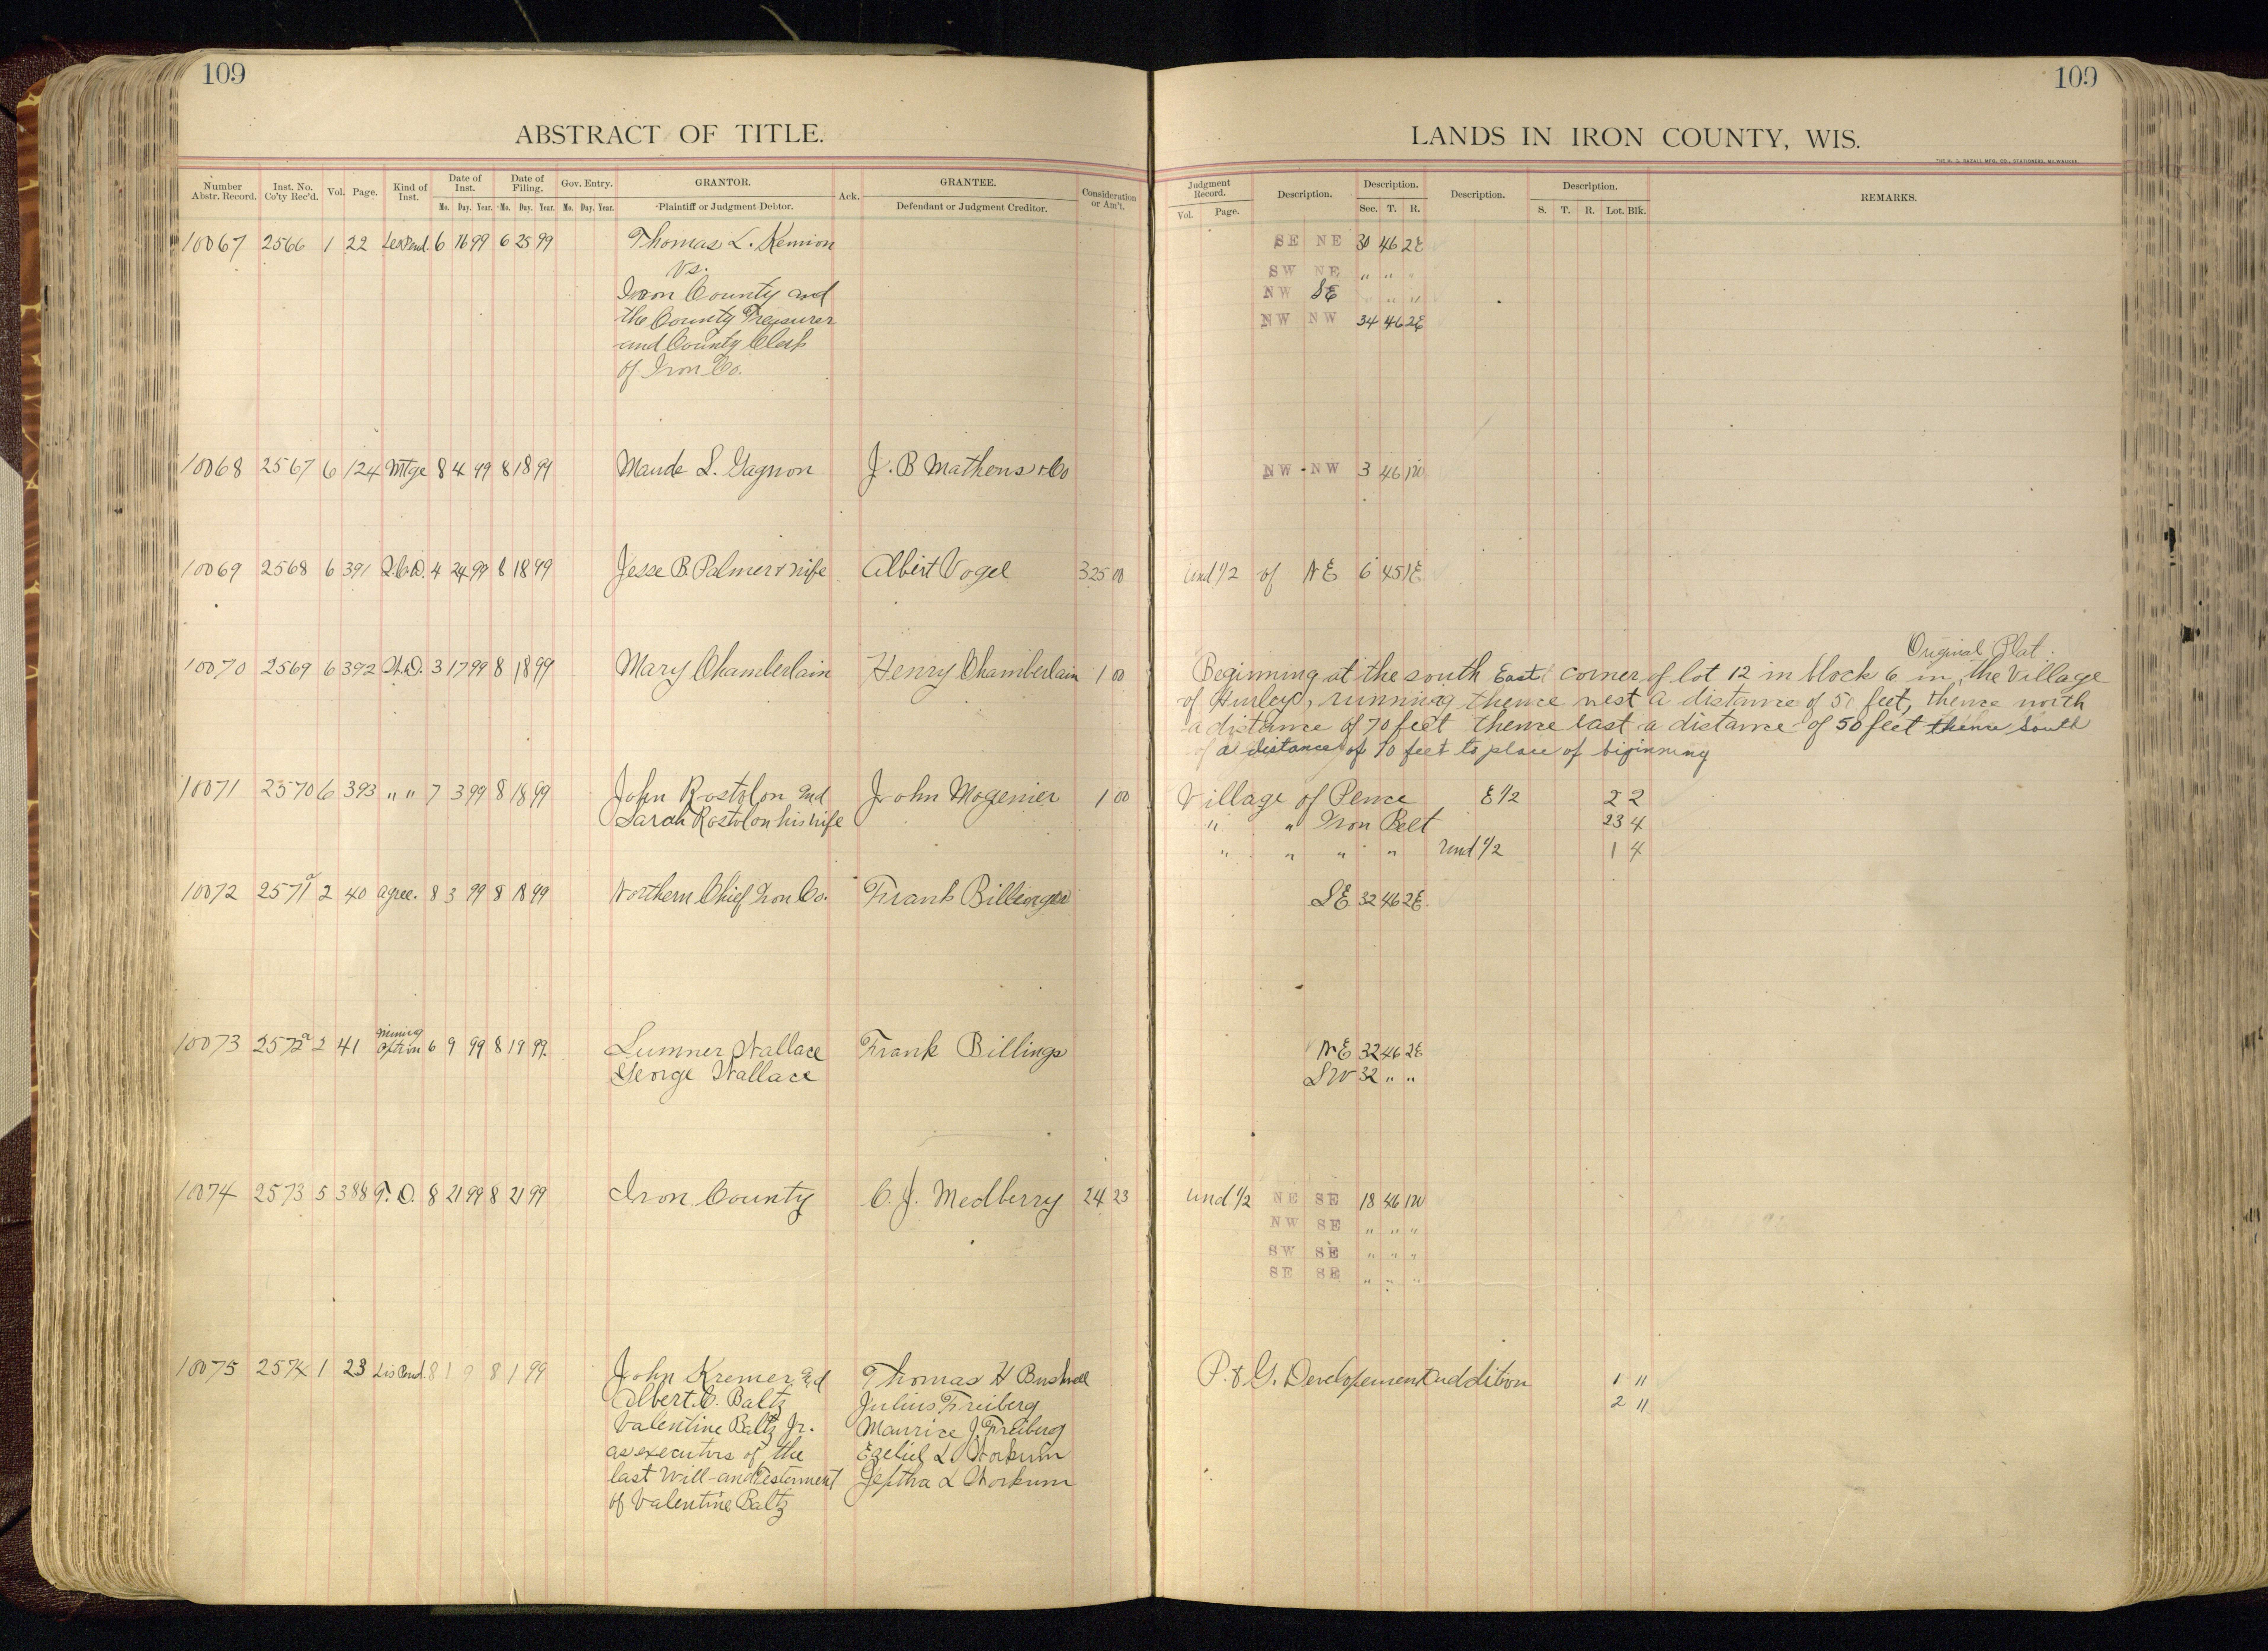 109
109
ABSTRACT OF TITLE.
LANDS IN IRON COUNTY, WIS.
THE H. G. RAZALL MFG. CO., STATIONERS, MILWAUKEE.
Number Abstr. Record. Inst. No. Co'ty Rec'd. Vol. Page. Kind of Inst. Date of Inst. Mo. Day. Year. Date of Filing. Mo. Day. Year. Gov. Entry. Mo. Day. Year. GRANTOR. Plaintiff or Judgment Debtor. Ack. GRANTEE. Defendant or Judgment Creditor. Consideration or Am't.
Judgment Record. Vol. Page. Description. Description. Sec. T. R. Description. Description. S. T. R. Lot. Blk. REMARKS.
10067 2566 1 22 6 16 99 6 25 99 Thomas L. Kemion SE NE 30 46 2E
vs. SW NE " " "
Iron County and NW SE " " "
the County Treasurer NW NW 34 46 2E
and County Clerk
of Iron Co.
10068 2567 6 124 Mtge 8 4 99 8 18 99 Maude L. Gagnon J. B Mathews & Co NW NW 3 46 1W
10069 2568 6 391 Q.C.D. 4 24 99 8 18 99 Jesse B. Palmer & wife Albert Vogel 325 00 und 1/2 of NE 6 45 1E
Original Plat.
10070 2569 6 392 W.D. 3 17 99 8 18 99 Mary Chamberlain Henry Chamberlain 1 00 Beginning at the south East corner of lot 12 in block 6 in the Village
of Hurley, running thence west a distance of 50 feet, thence north
a distance of 70 feet thence east a distance of 50 feet thence South
of a distance of 70 feet to place of biginning
10071 2570 6 393 " " 7 3 99 8 18 99 John Rostolon and John Mogenier 1 00 Village of Pence E 1/2 2 2
Sarah Rostolon his wife " " Iron Belt 23 4
" " " " und 1/2 1 4
10072 2571a 2 40 agree. 8 3 99 8 18 99 Northern Chief Iron Co. Frank Billings SE 32 46 2E
10073 2572a 2 41 Mining Option 6 9 99 8 19 99. Lumner Wallace Frank Billings NE 32 46 2E
George Wallace SW 32 " "
10074 2573 5 388 T. D. 8 21 99 8 21 99 Iron County C. J. Medberry 24 23 und 1/2 NE SE 18 46 1W
NW SE " " "
SW SE " " "
SE SE " " "
10075 2574 1 23 Lis Pend. 8 1 9 8 1 99 John Kremer and Thomas H Bushnell P. & G. Developement addition 1 11
Albert C. Baltz Julius Freiberg 2 11
Valentine Baltz Jr. Maurice J. Freiberg
as executors of the Ezekiel L. Workum
last Will and Testament Jeptha L Workum
of Valentine Baltz